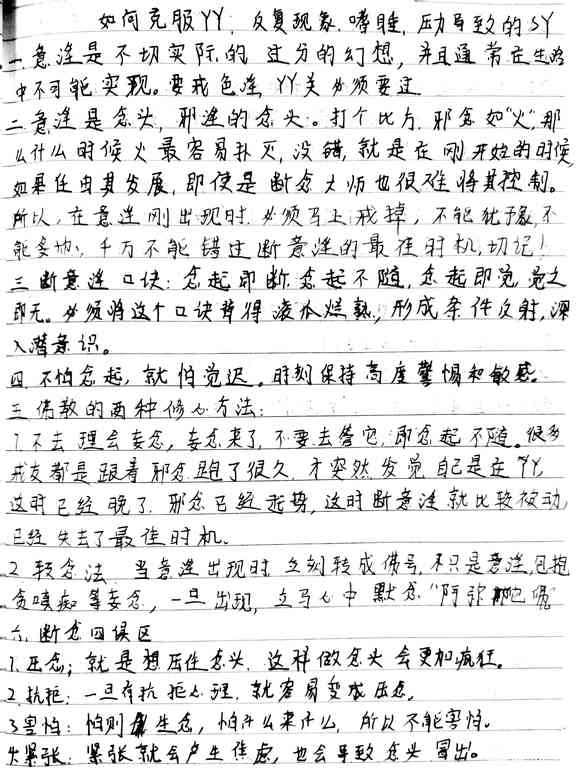 如何克服YY, 反复现象, 嗜睡, 压力导致的SY
一.意淫是不切实际的 过分的幻想, 并且通常在生活
中不可能实现。要戒色淫, YY关必须要过
二.意淫是念头, 邪淫的念头。打个比方, 邪念如“火”,那
么什么时候火最容易扑灭,没错,就是在刚开始的时候,
如果任由其发展,即使是断念大师也很难将其控制。
所以,在意淫刚出现时,必须马上戒掉,不能犹豫,不
能多想,千万不能错过断意淫的最佳时机,切记!
三.断意淫口诀:念起即断,念起不随,念起即觉,觉之
即无。必须将这个口诀背得滚瓜烂熟,形成条件反射,深
入潜意识。
四.不怕念起,就怕觉迟。时刻保持高度警惕和敏感。
五.佛教的两种修心方法:
1.不去理会妄念,妄念来了,不要去管它,即念起不随。很多
戒友都是跟着邪念跑了很久,才突然发觉自己是在YY,
这时已经晚了,邪念已经起势,这时断意淫就比较被动,
已经失去了最佳时机。
2.转念法 当意淫出现时 立刻转成佛号,不只是意淫,包括
贪嗔痴等妄念,一旦出现,立马心中默念“阿弥陀佛
六.断念四误区
1.压念;就是想压住念头,这样做念头会更加疯狂。
2.抗拒:一旦有抗拒心理,就容易变成压念。
3.害怕:怕则生念,怕什么来什么,所以不能害怕。
4.紧张:紧张就会产生焦虑,也会导致念头冒出。